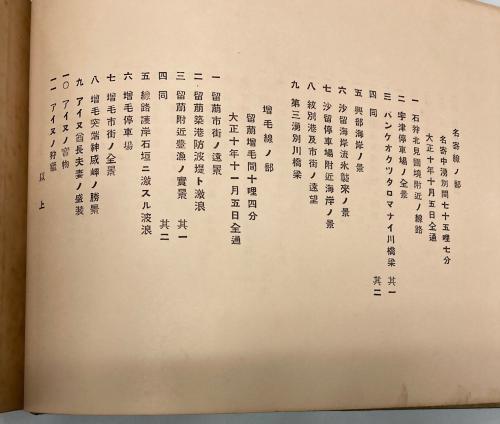 名寄線ノ部
名寄中湧別間七十五哩七分
大正十年十月五日全通
一 石狩北見國境附近ノ線路
二 宇津停車場ノ全景
三 パンケオクツタロマナイ川橋梁 其一
四 同 其二
五 興部海岸ノ景
六 沙留海岸流氷襲來ノ景
七 沙留停車場附近海岸ノ景
八 紋別港及市街ノ遠望
九 第三湧別川橋梁
增毛線ノ部
留萠增毛間十哩四分
大正十年十一月五日全通
一 留萠市街ノ遠景
二 留萠築港防波堤ト激浪
三 留萠附近豊漁ノ實景 其一
四 同 其二
五 線路護岸石垣ニ激スル波浪
六 增毛停車場
七 增毛市街ノ全景
八 增毛突端神威岬ノ勝景
九 アイヌ酋長夫妻ノ盛装
一〇 アイヌノ寳物
一一 アイヌノ狩獵
以上